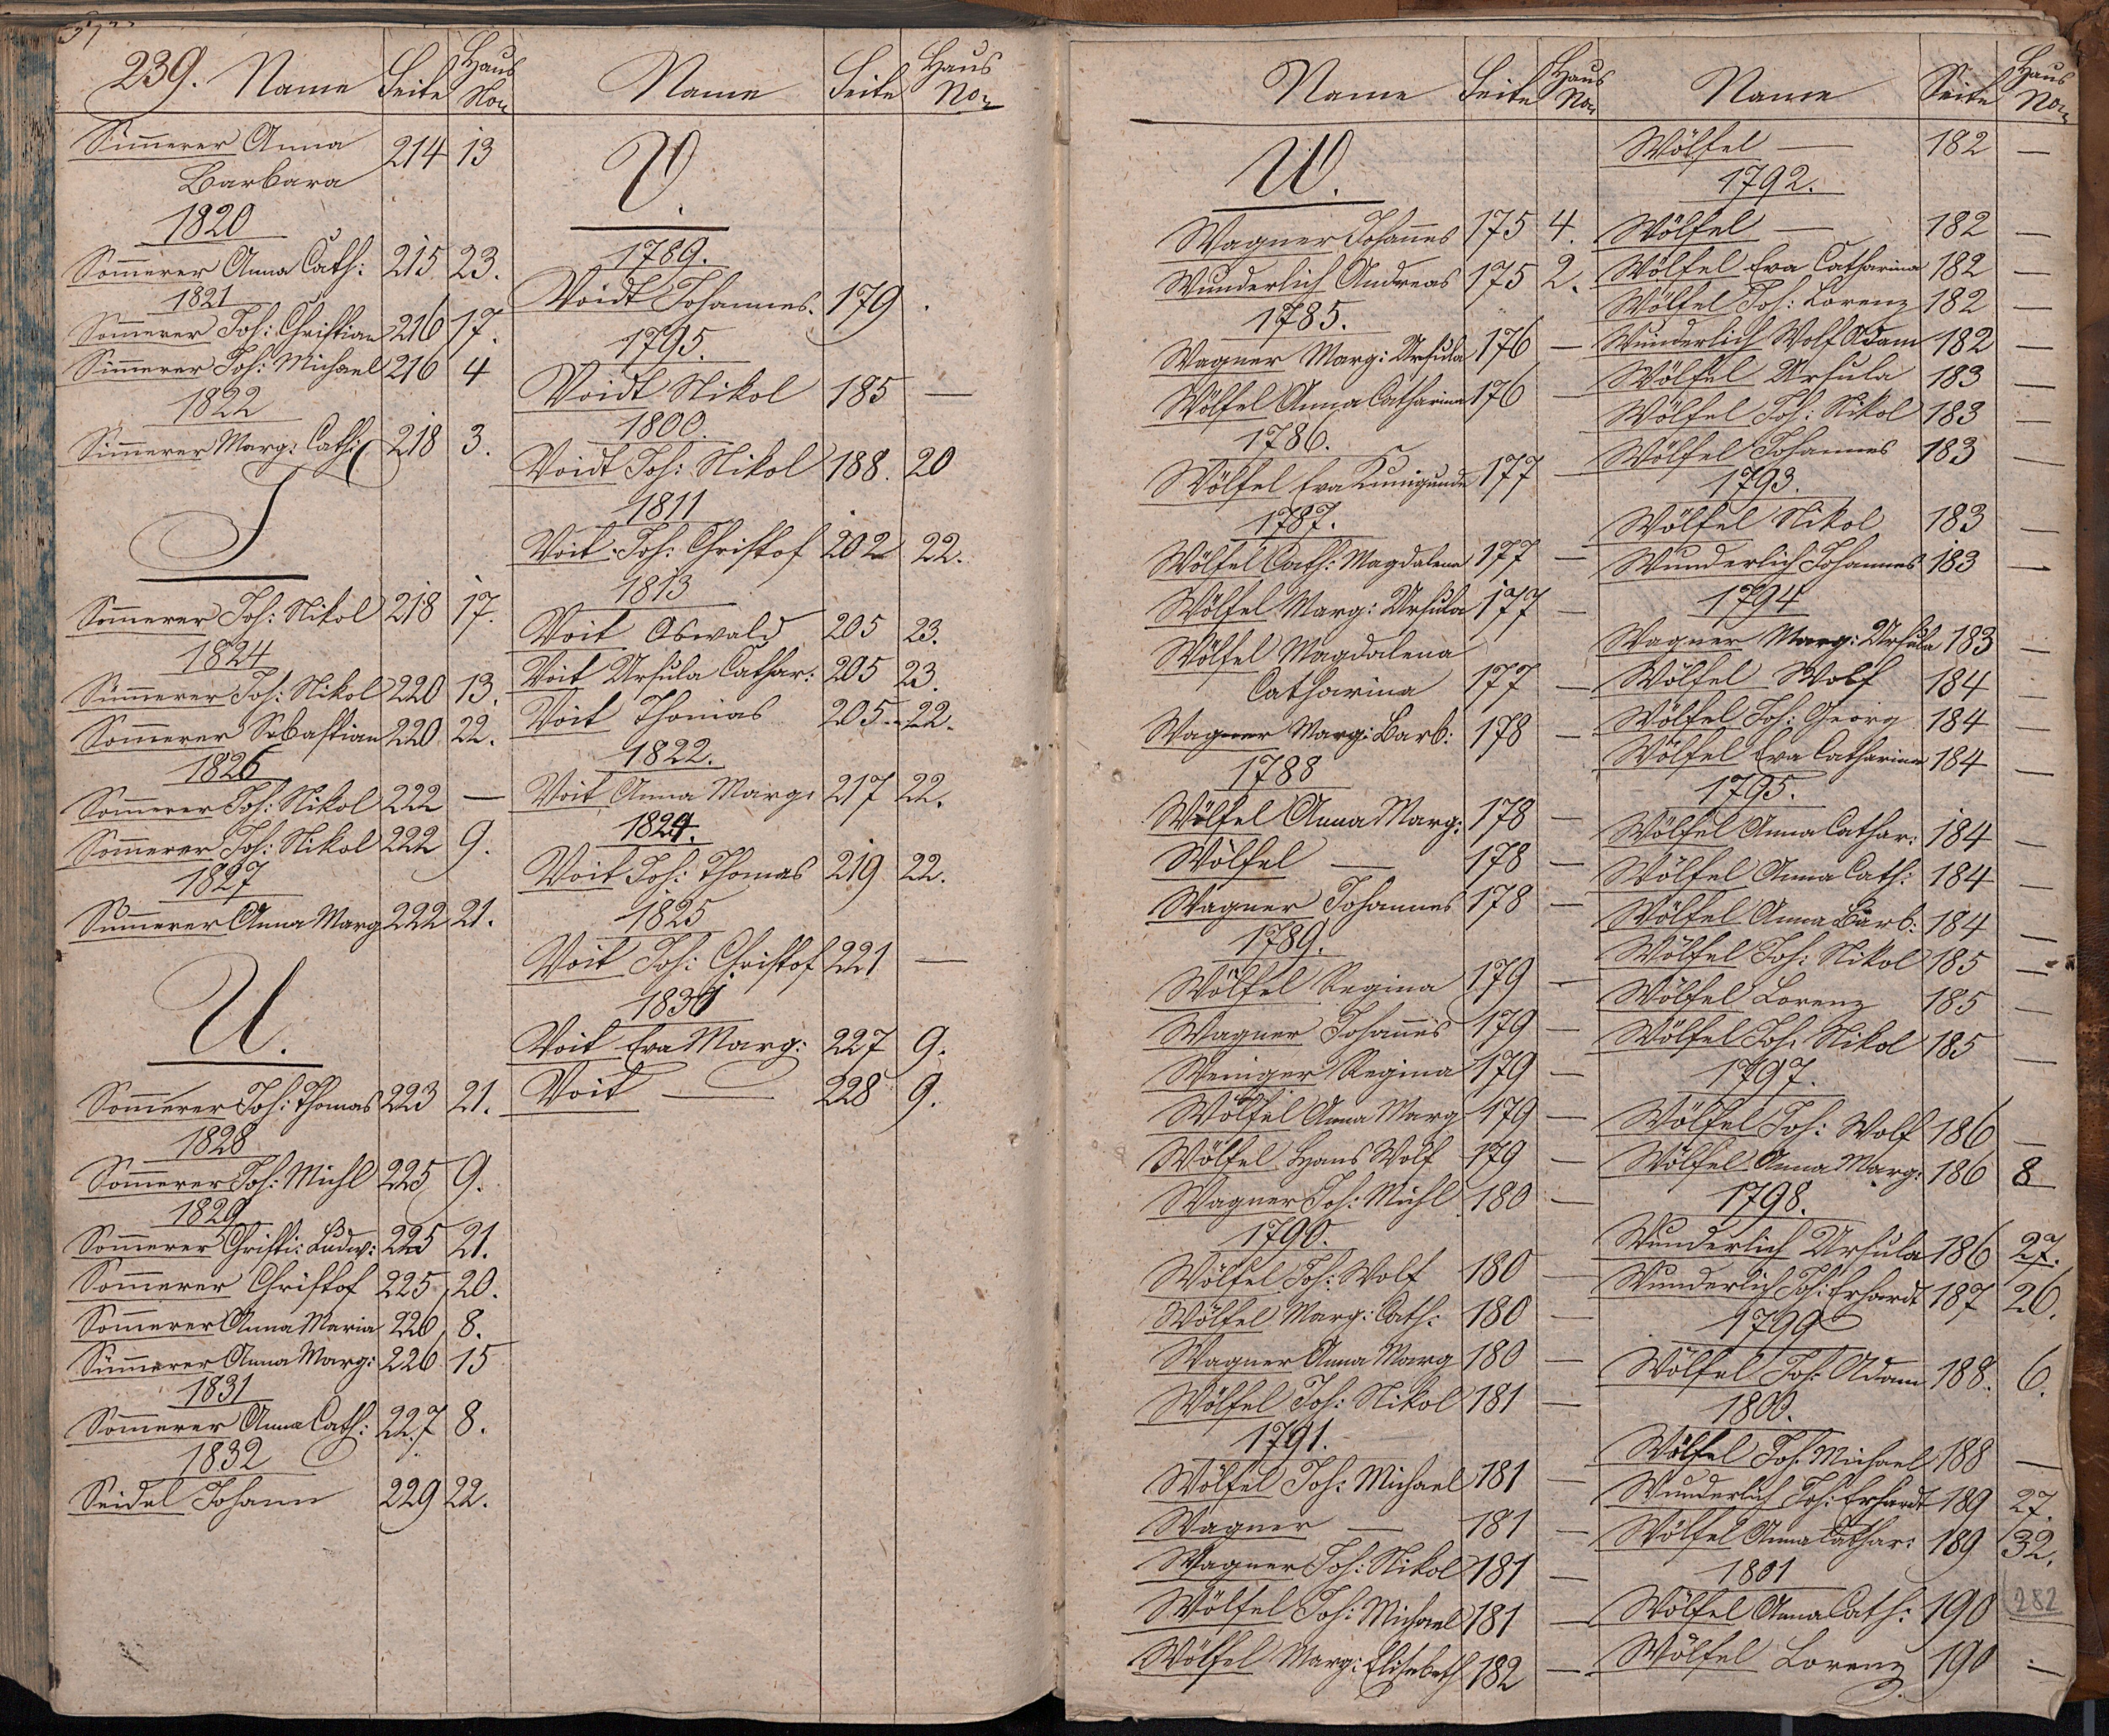 239. Name Seite Haus No
Simmerer Anna 214 13
Barbara
1820
Sommerer Anna Cath: 215 23.
1821
Sommerer Joh: Christian 216 17.
Simmerer Joh: Michael 216 4
1822
Simmerer Marg: Cath: 218 3.
T
Sommerer Joh: Nikol 218 17.
1824
Simmerer Joh: Nikol 220 13.
Sommerer Sebastian 220 22.
1826
Sommerer Joh: Nikol 222 —
Sommerer Joh: Nikol 222 9.
1827
Sommerer Anna Marg 222 21.
U.
Sommerer Joh: Thomas 223 21.
1828
Sommerer Joh: Michl 225 9.
1829
Sommerer Christi: Ludw: 225 21.
Sommerer Christof 225 20.
Sommerer Anna Maria 226 8.
Simmerer Anna Marg: 226 15
1831
Sommerer Anna Cath: 227 8.
1832
Seidel Johann 229 22.
Name Seite Haus No
V.
1789.
Voidt Johannes. 179 .
1795.
Voidt Nikol 185 —
1800.
Voidt Joh: Nikol 188. 20
1811
Voit Joh: Christof 202 22.
1813
Voit Oswald 205 23.
Voit Ursula Cathar: 205 23.
Voit Thomas 205 22.
1822.
Voit Anna Marg: 217 22.
1824.
Voit Joh: Thomas 219 22.
1825
Voit Joh: Christof 221 —
1831
Voit Eva Marg: 227 9.
Voit — 228 9.
Name Seite Haus No
W.
Wagner Johannes 175 4.
Wunderlich Andreas 175 2.
1785.
Wagner Marg: Ursula 176 —
Wölfel Anna Catharina 176 —
1786.
Wölfel Eva Kunigunde 177 —
1787.
Wölfel Cath: Magdalena 177 —
Wölfel Marg: Ursula 177 —
Wölfel Magdalena
Catharina 177 —
Wagner Marg: Barb: 178 —
1788
Wölfel Anna Marg: 178 —
Wölfel — 178 —
Wagner Johannes 178 —
1789.
Wölfel Regina 179 —
Wagner Johannes 179 —
Weniger Regina 179 —
Wölfel Anna Marg 179 —
Wölfel Hans Wolf 179 —
Wagner Joh: Michl 180 —
1790.
Wölfel Joh: Wolf 180 —
Wölfel Marg: Cath: 180 —
Wagner Anna Marg 180 —
Wölfel Joh: Nikol 181 —
1791.
Wölfel Joh: Michael 181 —
Wagner — 181 —
Wagner Joh: Nikol 181 —
Wölfel Joh: Michael 181 —
Wölfel Marg: Elisebeth 182 —
Name Seite Haus No
Wölfel — 182 —
1792.
Wölfel — 182 —
Wölfel Eva Catharina 182 —
Wölfel Joh: Lorenz 182 —
Wunderlich Wolf Adam 182 —
Wölfel Ursula 183 —
Wölfel Joh: Nikol 183 —
Wölfel Johannes 183 —
1793.
Wölfel Nikol 183 —
Wunderlich Johannes 183 —
1794
Wagner Marg: Ursula 183 —
Wölfel Wolf 184 —
Wölfel Joh: Georg 184 —
Wölfel Eva Catharina 184 —
1795.
Wölfel Anna Cathar: 184 —
Wölfel Anna Cath: 184 —
Wölfel Anna Barb: 184 —
Wölfel Joh: Nikol 185 —
Wölfel Lorenz 185 —
Wölfel Joh: Nikol 185 —
1797.
Wölfel Joh: Wolf 186 —
Wölfel Anna Marg: 186 8
1798.
Wunderlich Ursula 186 27.
Wunderlich Joh: Erhardt 187 26.
1799
Wölfel Joh: Adam 188. 6.
1800.
Wölfel Joh: Michael 188 —
Wunderlich Joh: Erhardt 189 27.
Wölfel Anna Cathar: 189 32.
1801
Wölfel Anna Cath: 190 282
Wölfel Lorenz 190 —